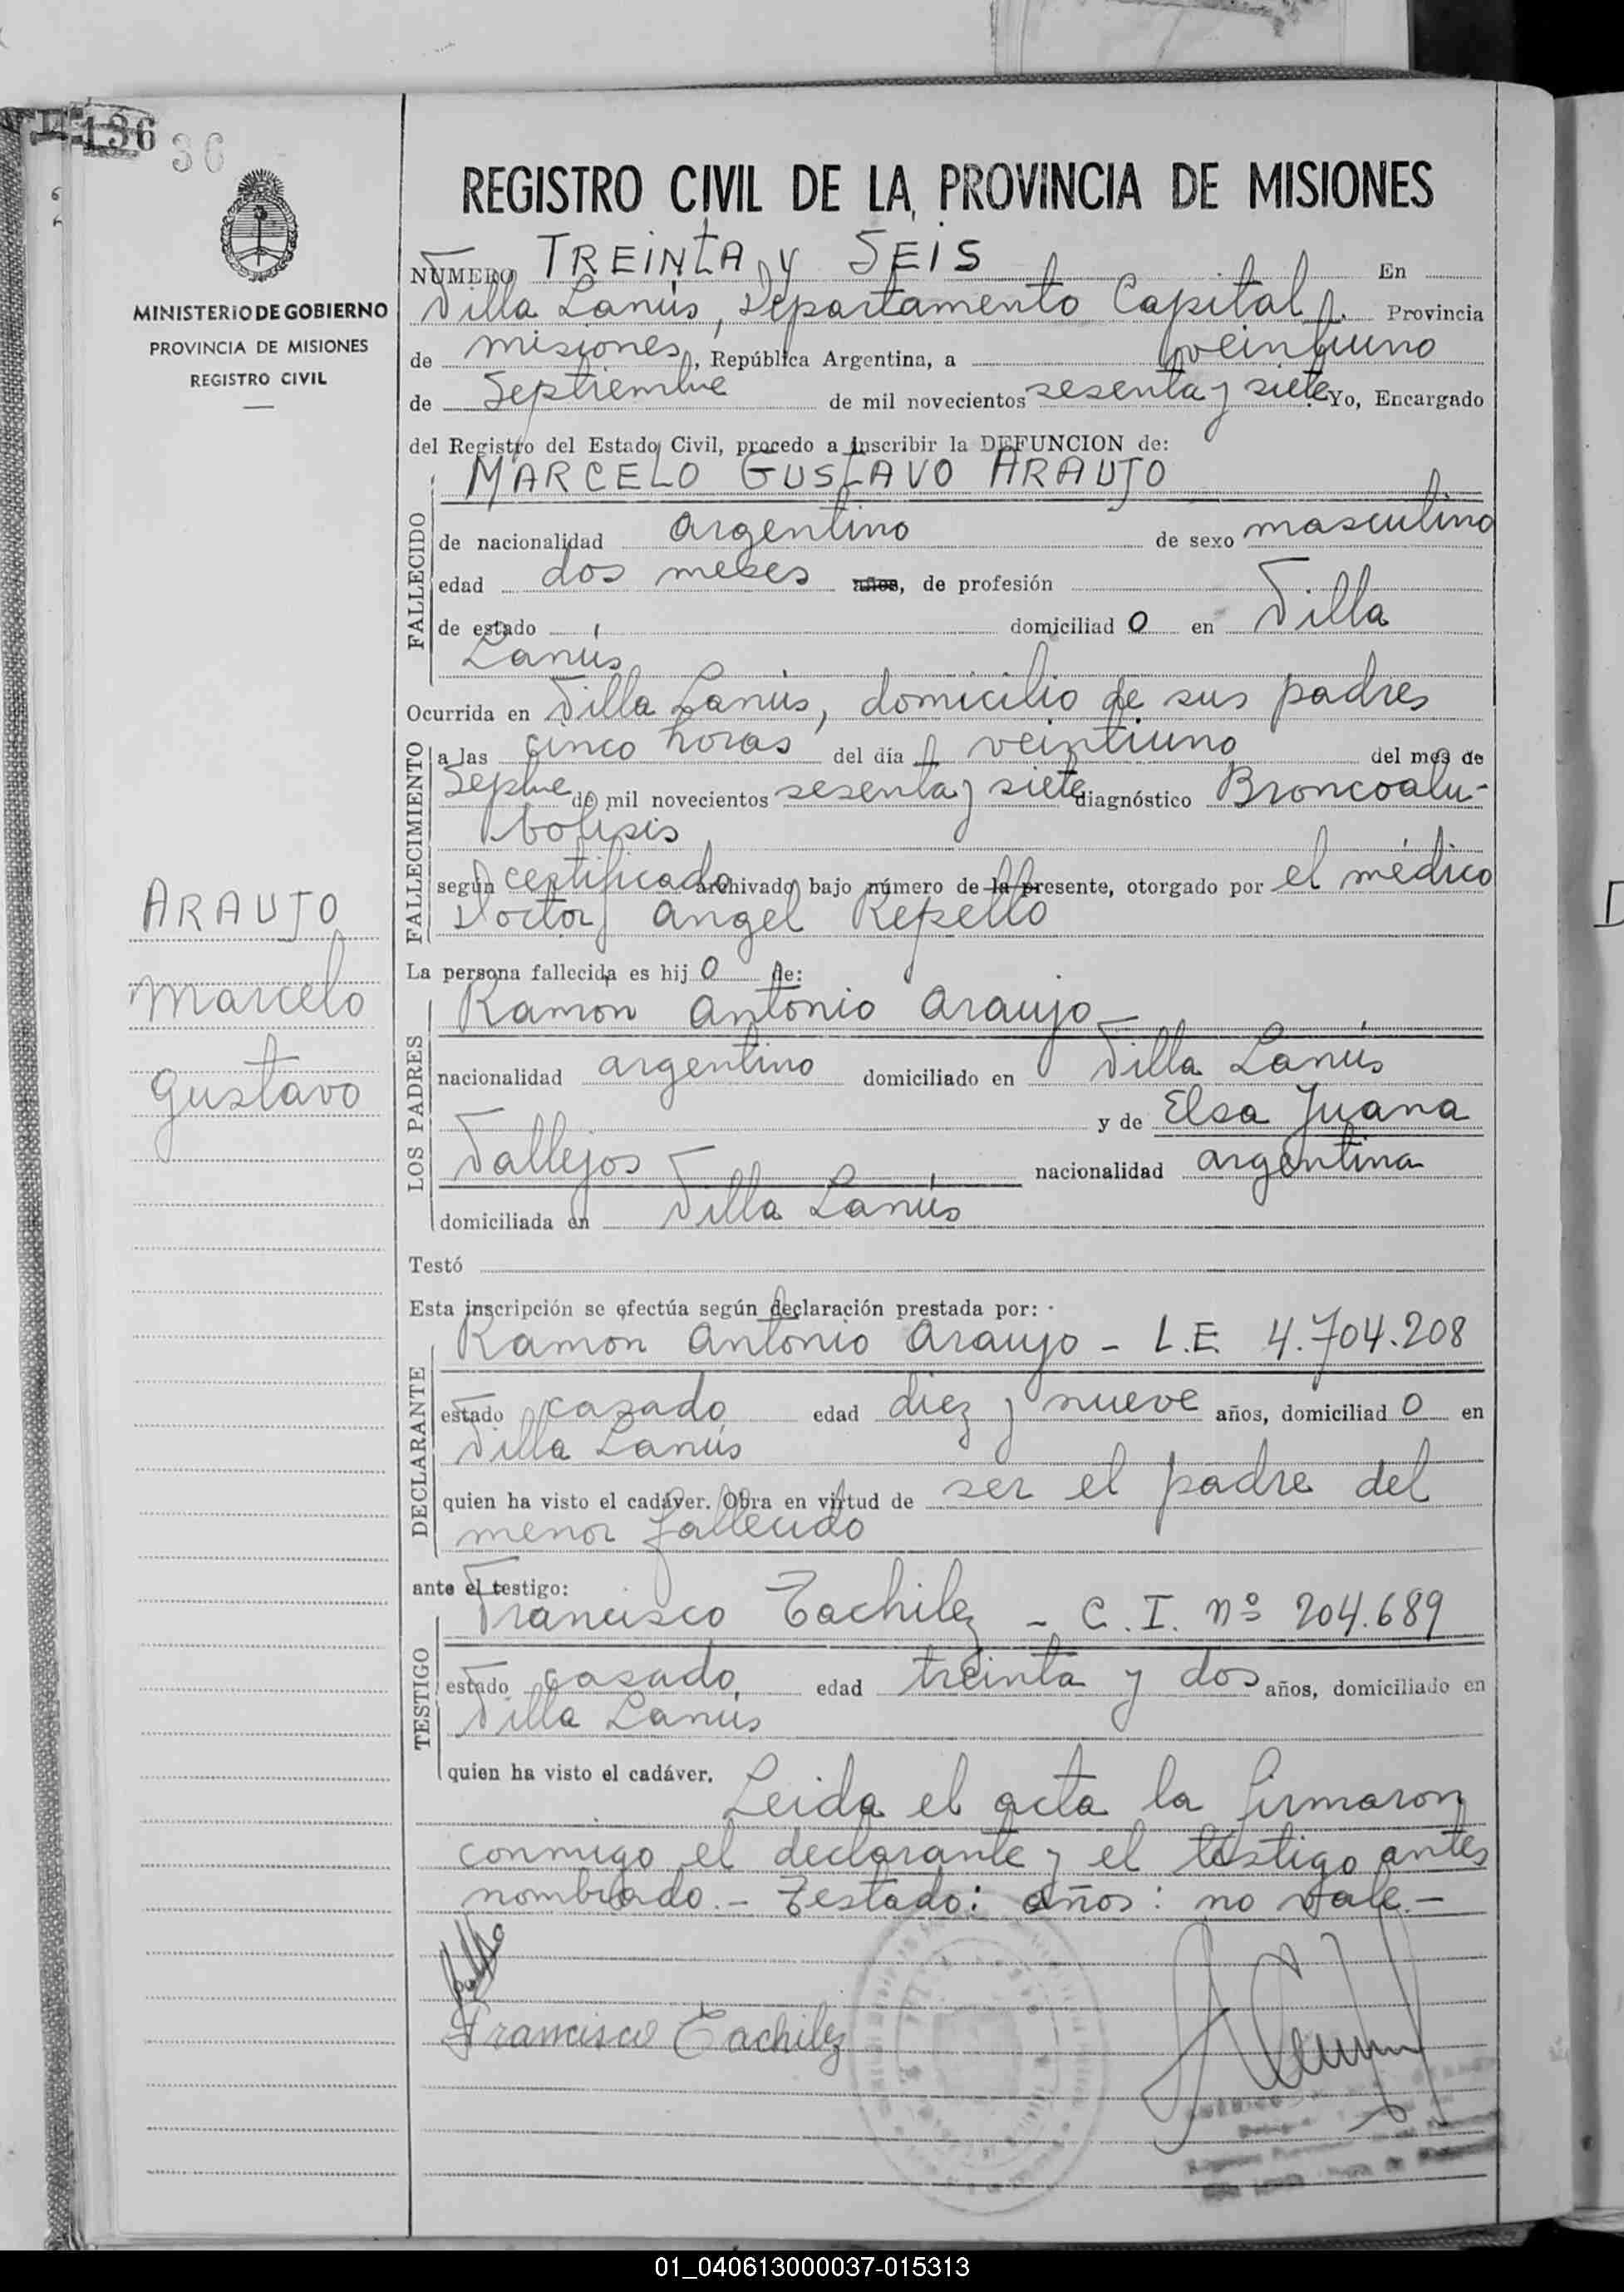 136 36
MINISTERIO DE GOBIERNO
PROVINCIA DE MISIONES
REGISTRO CIVIL
ARAUJO
Marcelo
Gustavo
REGISTRO CIVIL DE LA PROVINCIA DE MISIONES
NUMERO TREINTA y SEIS En
Villa Lanús, Departamento Capital, Provincia
de misiones, República Argentina, a veintiuno
de Septiembre de mil novecientos sesenta y siete Yo, Encargado
del Registro del Estado Civil, procedo a inscribir la DEFUNCION de:
FALLECIDO
MARCELO GUSTAVO ARAUJO
de nacionalidad argentino de sexo masculino
edad dos meses años, de profesión
de estado domiciliad o en Villa
Lanús
Ocurrida en Villa Lanús, domicilio de sus padres
FALLECIMIENTO
a las cinco horas del día veintiuno del mes de
Sepbre de mil novecientos sesenta y siete diagnóstico Broncoalu-
bolisis
según certificado archivado bajo número de la presente, otorgado por el médico
Doctor Angel Repetto
La persona fallecida es hij o de:
LOS PADRES
Ramon Antonio Araujo
nacionalidad argentino domiciliado en Villa Lanús
y de Elsa Juana
Vallejos nacionalidad argentina
domiciliada en Villa Lanús
Testó
Esta inscripción se efectúa según declaración prestada por:
DECLARANTE
Ramon Antonio Araujo - L.E. 4.704.208
estado casado edad diez y nueve años, domiciliad o en
Villa Lanús
quien ha visto el cadáver. Obra en virtud de ser el padre del
menor fallecido
ante el testigo:
TESTIGO
Francisco Tachilez - C.I. Nº 204.689
estado casado, edad treinta y dos años, domiciliado en
Villa Lanus
quien ha visto el cadáver.
Leida el acta la firmaron
conmigo el declarante y el testigo antes
nombrado.- Testado: años: no vale.-
Francisco Tachilez
01_040613000037-015313